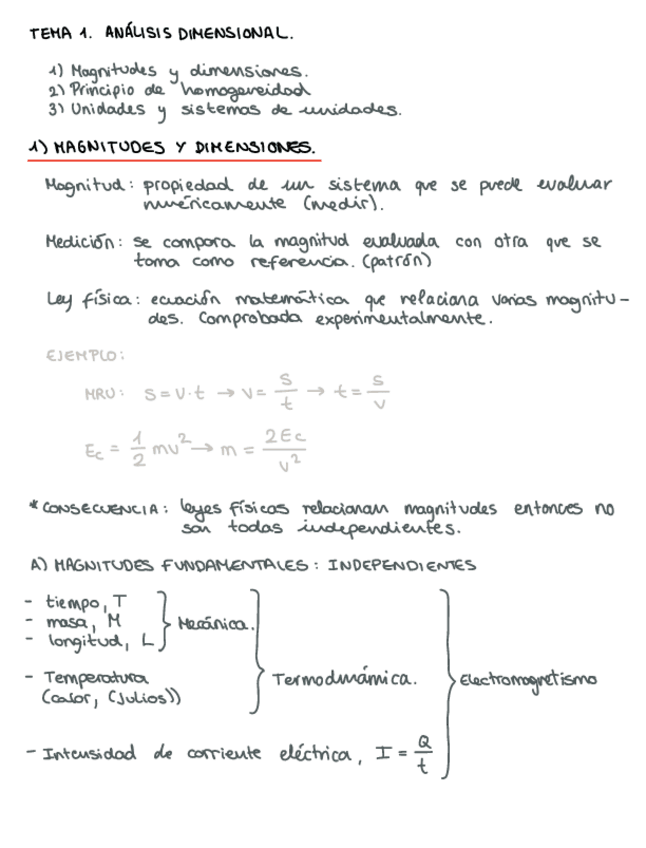 TEMA 1. ANÁLISIS DIMENSIONAL.
1) Magnitudes y dimensiones.
2) Principio de homogeneidad
3) Unidades y sistemas de unidades.
1) MAGNITUDES Y DIMENSIONES.
Magnitud: propiedad de un sistema que se puede evaluar
numéricamente (medir).
Medición: se compara la magnitud evaluada con otra que se
toma como referencia. (patrón)
Ley física: ecuación matemática que relaciona varias magnitu-
des. Comprobada experimentalmente.
EJEMPLO:
MRU: S = V·t → V = S/t → t = S/V
Ec = 1/2 mv² → m = 2Ec/v²
* CONSECUENCIA: leyes físicas relacionan magnitudes entonces no
son todas independientes.
A) MAGNITUDES FUNDAMENTALES: INDEPENDIENTES
- tiempo, T
- masa, M } Mecánica.
- longitud, L
- Temperatura } Termodinámica. } Electromagnetismo
(calor, (Julios))
- Intensidad de corriente eléctrica, I = Q/t